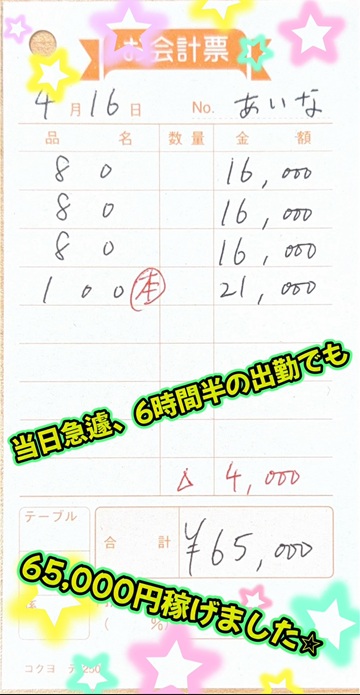 お会計票
4月16日 No. あいな
品名 数量 金額
80 16,000
80 16,000
80 16,000
100 本 21,000
当日急遽、6時間半の出勤でも
△ 4,000
テーブル
合計 ¥65,000
65,000円稼げました☆
( %)
コクヨ テ-250